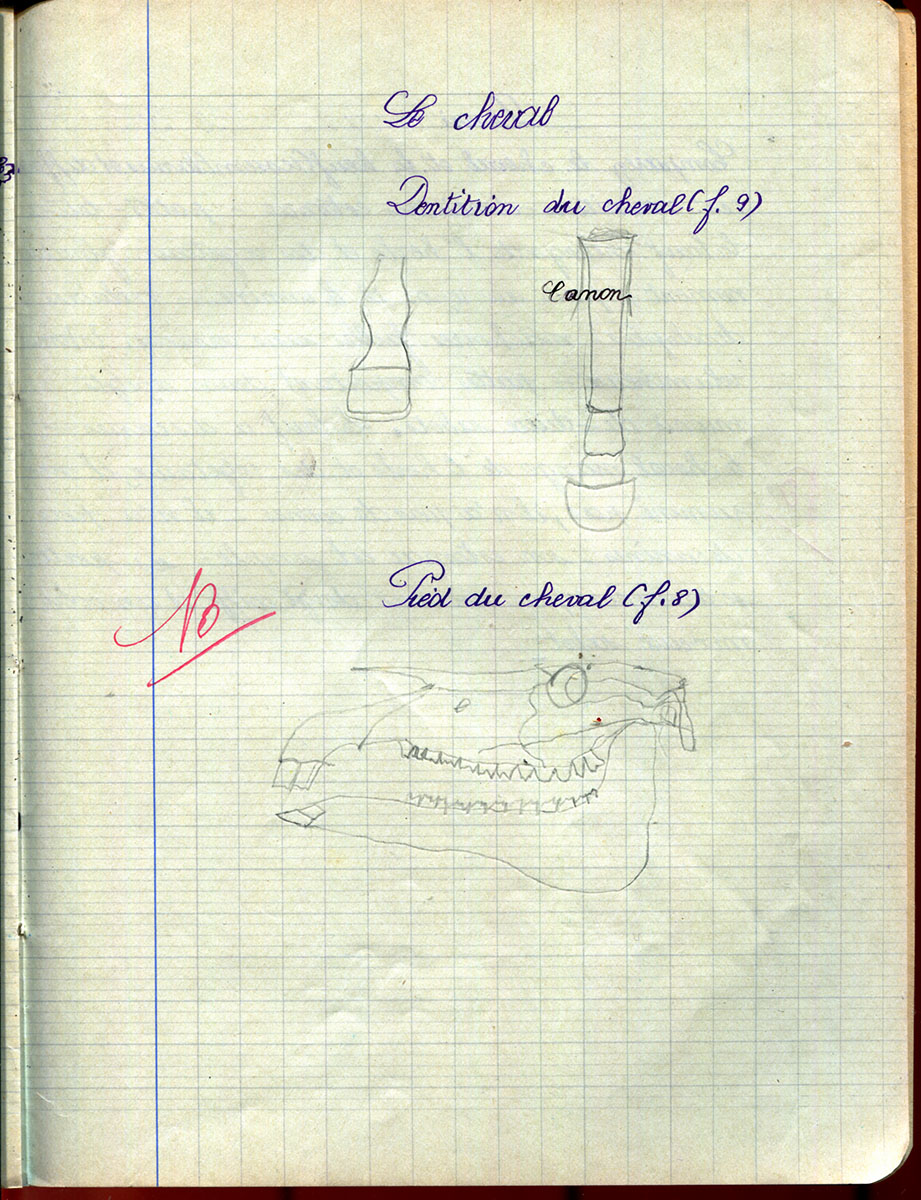 Le cheval
Dentition du cheval (f. 9)
Canon
Pied du cheval (f. 8)